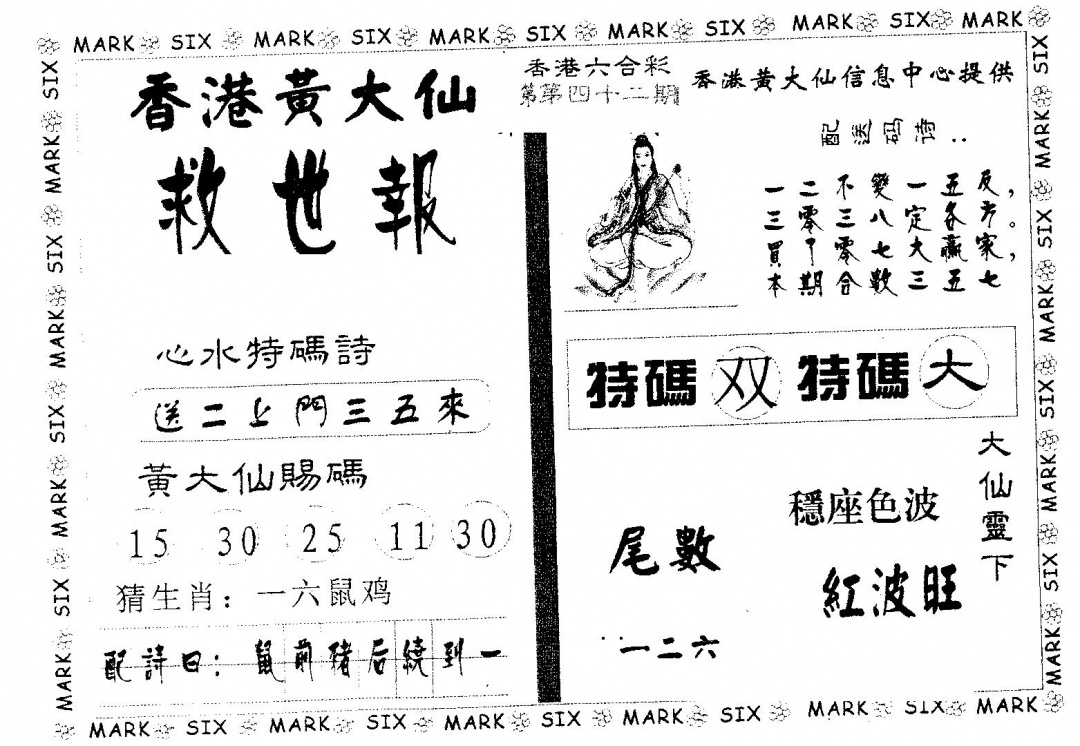 MARK SIX MARK SIX MARK SIX MARK SIX MARK SIX MARK
香港黃大仙
救世報
心水特碼詩
送二上門三五來
黃大仙賜碼
15 30 25 11 30
猜生肖：一六鼠鸡
配詩曰：鼠前豬后繞到一
香港六合彩
第四十二期
香港黄大仙信息中心提供
配送码诗：
一二不變一五反，
三零三八定各方。
買了零七大贏家，
本期合数三五七
特碼 双 特碼 大
大仙靈下
穩座色波
紅波旺
尾數
一二六
MARK SIX MARK SIX MARK SIX MARK SIX MARK SIX MARK
SIX MARK SIX MARK SIX MARK SIX MARK
SIX MARK SIX MARK SIX MARK SIX MARK